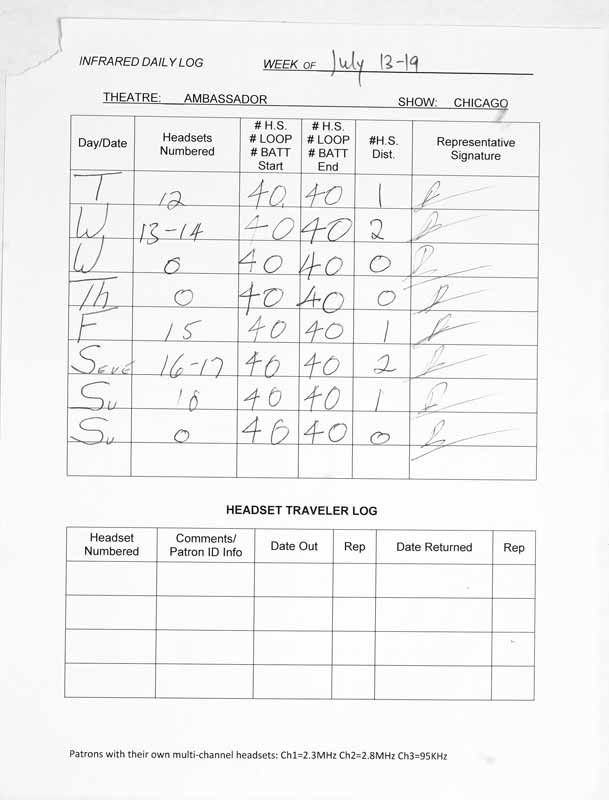 INFRARED DAILY LOG WEEK OF July 13-19
THEATRE: AMBASSADOR SHOW: CHICAGO
Day/Date Headsets Numbered # H.S. # LOOP # BATT Start # H.S. # LOOP # BATT End #H.S. Dist. Representative Signature
T 12 40 40 1
W 13-14 40 40 2
W 0 40 40 0
Th 0 40 40 0
F 15 40 40 1
S eve 16-17 40 40 2
Su 18 40 40 1
Su 0 40 40 0
HEADSET TRAVELER LOG
Headset Numbered Comments/ Patron ID Info Date Out Rep Date Returned Rep
Patrons with their own multi-channel headsets: Ch1=2.3MHz Ch2=2.8MHz Ch3=95KHz